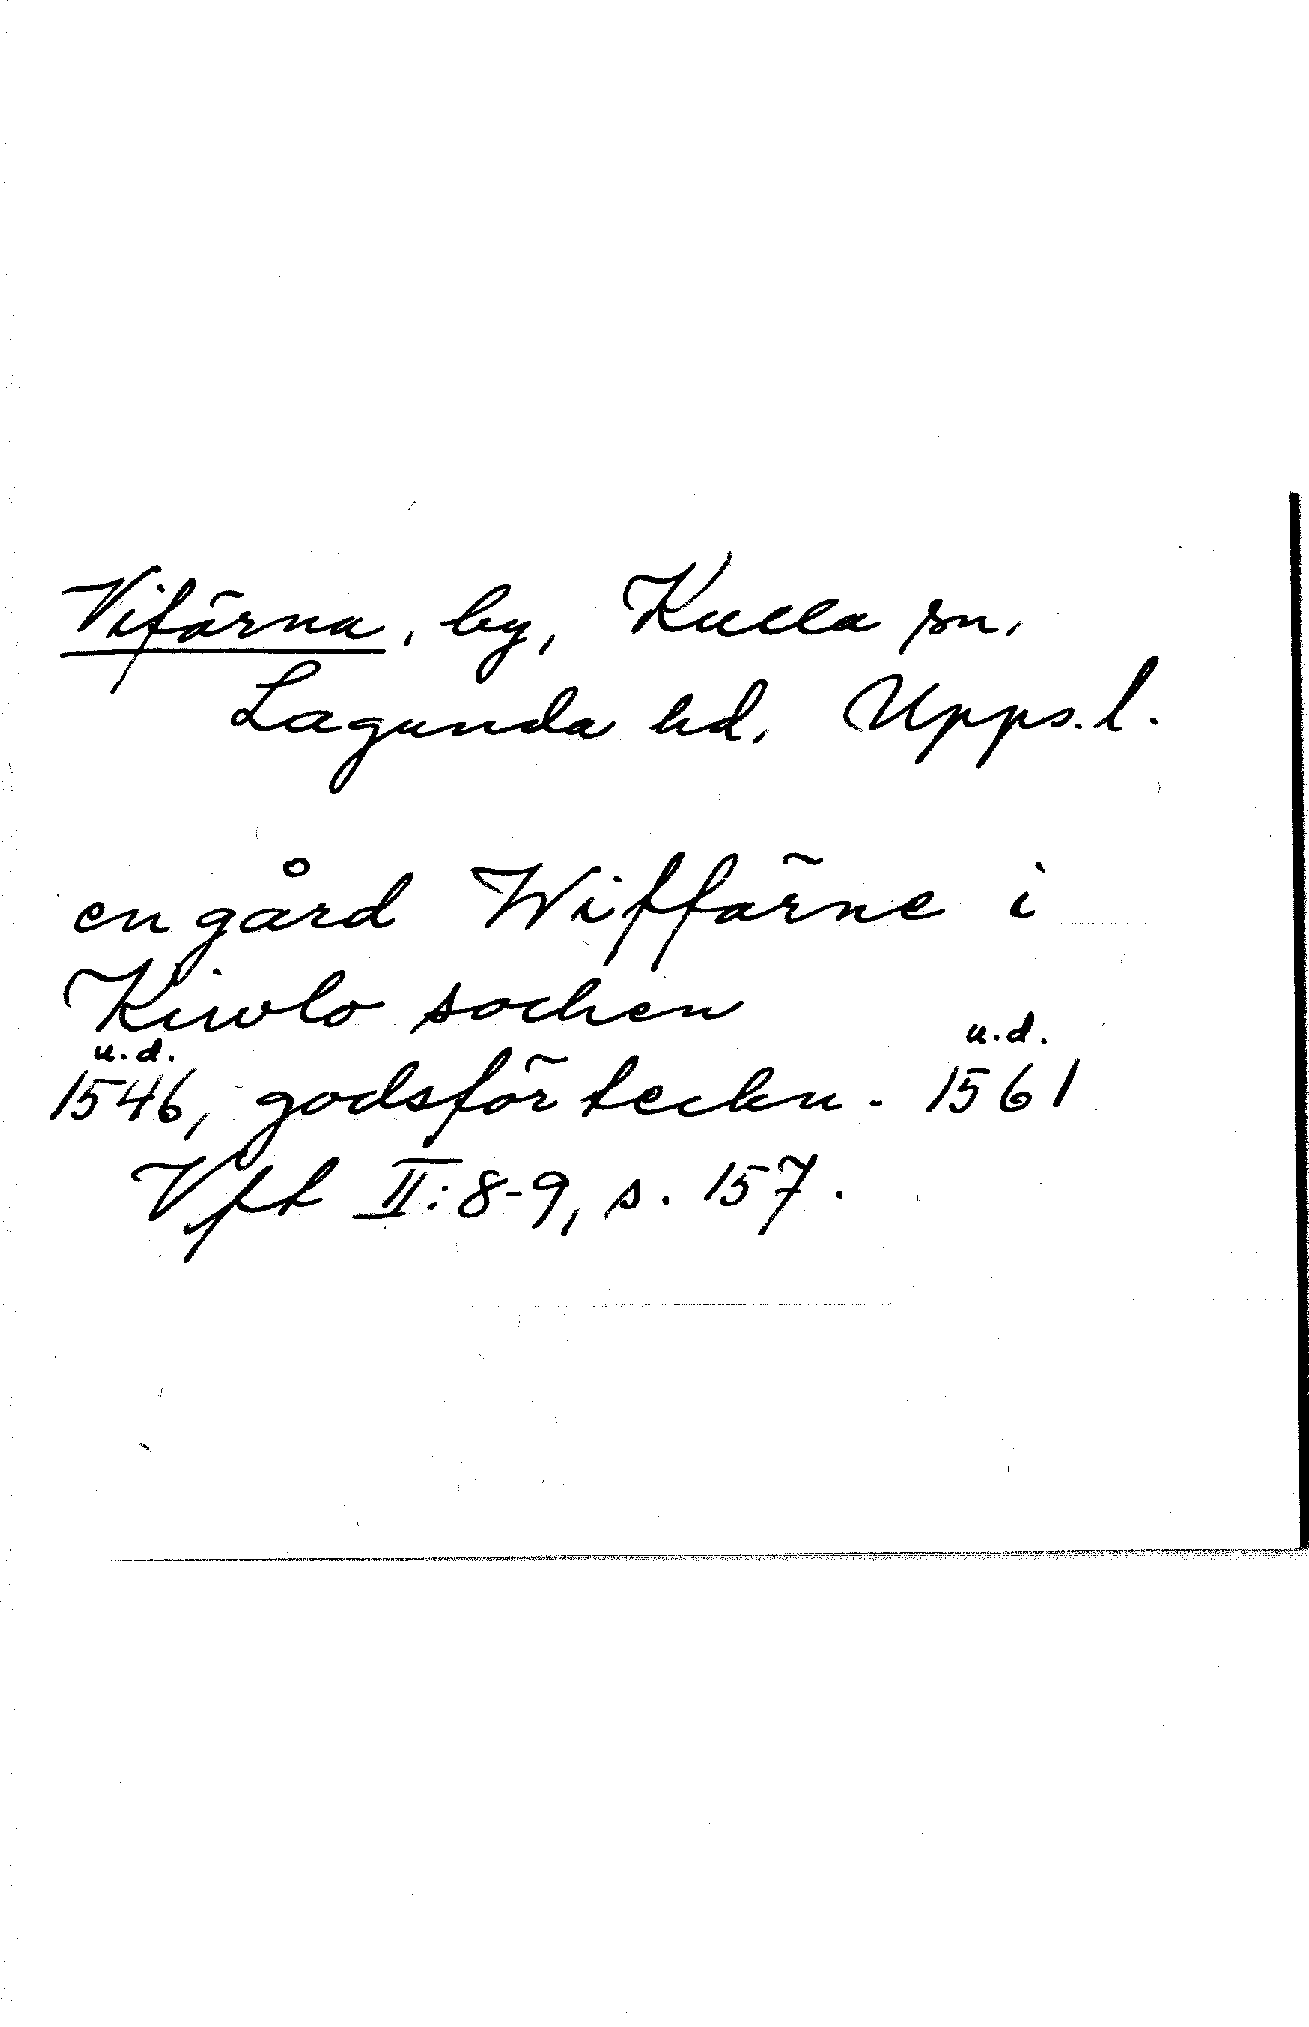 Vifärna, by, Kulla sn,
Lagunda hd, Upps. l.
en gård Wiffärne i
Kiwlo sochen
u.d. u.d.
1546, godsförteckn. 1561
Vft II:8-9, s. 157.